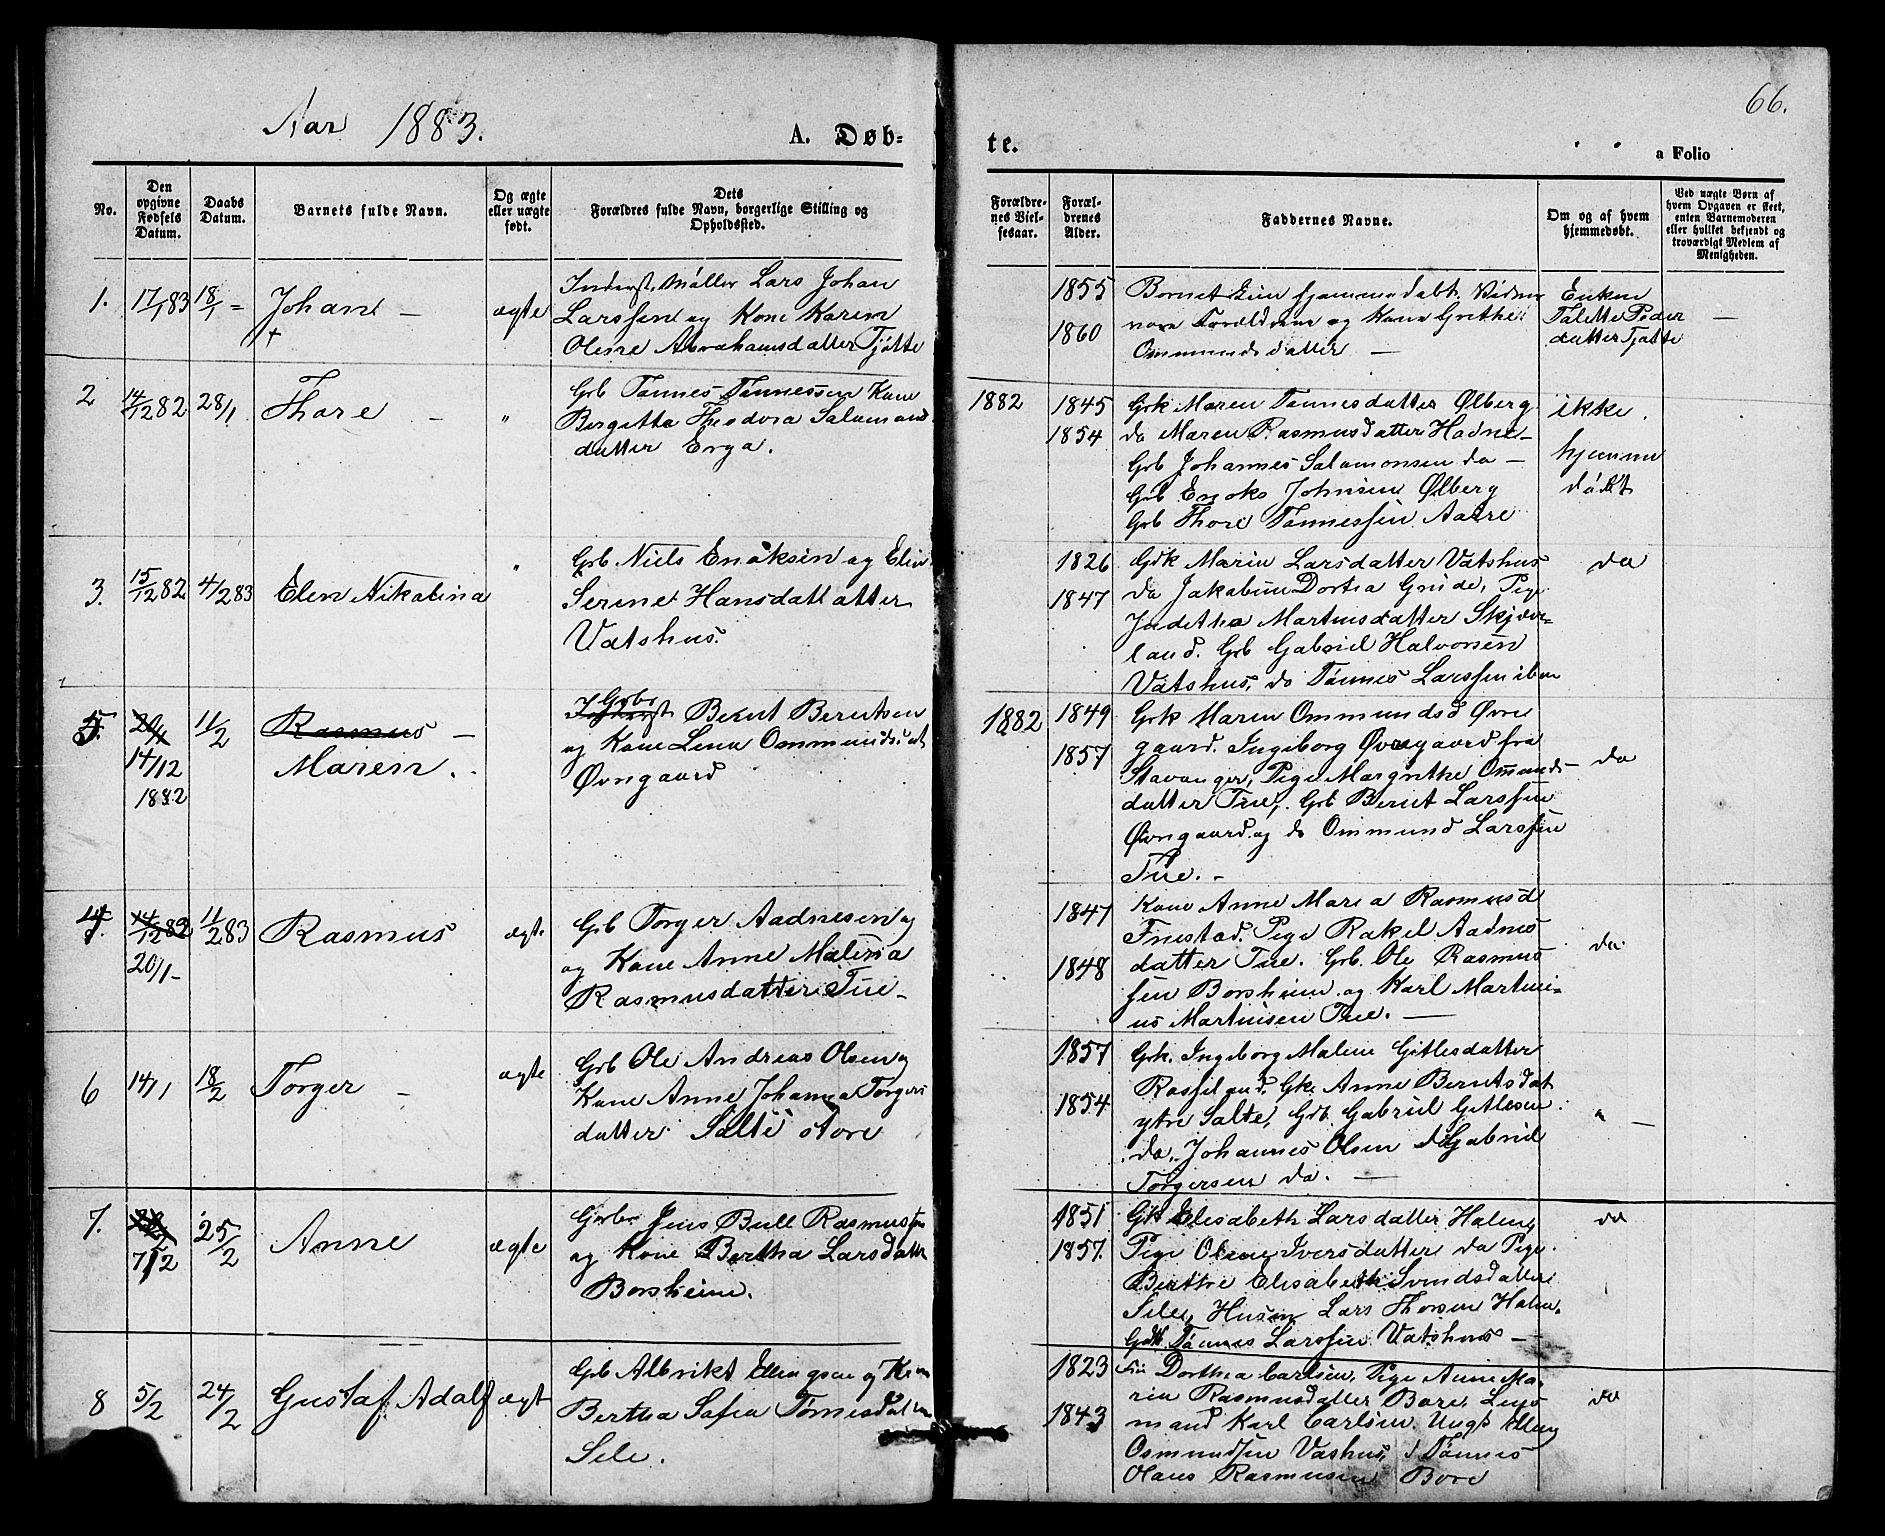 Aar 1883.
A. Døb=
te.
66.
a Folio
No.
Den opgivne Fødsels Datum.
Daabs Datum.
Barnets fulde Navn.
Og ægte eller uægte født.
Dets
Forældres fulde Navn, borgerlige Stilling og
Opholdssted.
Forældrenes Vielsesaar.
Forældrenes Alder.
Faddernes Navne.
Om og af hvem hjemmedøbt.
Ved uægte Børn af hvem Opgaven er skeet, enten Barnemoderen eller hvilket bekjendt og troværdigt Medlem af Menigheden.
1. 17/1 83 18/1 = Johan — ægte
Inderst. Møller Lars Johan
Larssen og Kone Karen
Olene Abrahamsdatter Tjøtte
1855
1860
Barnet hjemmedøbt. Vidner
Forældrene og Kone Grethe
Ommundsdatter —
Enken
Talette Peder
datter Tjøtte
—
2 14/12 82 28/1 Thore — "
Grb Tønnes Tønnessen Kone
Bergitta Theodora Salamons
datter Erga.
1882
1845
1854
Grk Maren Tønnesdatter Ølberg
do Maren Rasmusdatter Hodne —
Grb Johannes Salamonsen do —
Grb Enoks Johnsen Ølberg
Grb Thore Tønnessen Aasre
ikke
hjemme
døbt
3. 15/12 82 4/2 83 Elen Nikabina "
Grb. Niels Enoksen og Elen
Serine Hansdatter
Vatshus.
1826
1847
Gdk Marin Larsdatter Vatshus
do Jakobine Dortea Grude, Pige
Judetha Martinsdatter Skjæve-
land. Grb Gabriel Halvorsen
Vatshus, do Tønnes Larssen ibm
do
5. 20/1 11/2 Rasmus —
14/12 Maren.
1882
Grbr Bernt Berntsen
og Kone Lena Ommundsdat
Øvngaard
1882
1849
1857
Grk Maren Ommundsd Øvre
gaard. Ingeborg Øvregaard fra
Stavanger, Pige Margrethe Omunds-
datter Tue, Grb Bernt Larssen
Øvngaard og do Ommund Larssen
Tue. -
do
4. 14/12 82 11/2 83 Rasmus ægte
20/1 -
Grb Torger Aadnesen og
og Kone Anne Malena
Rasmusdatter Tue -
1847
1848
Kone Anne Maria Rasmusd
Fuestad. Pige Rakel Aadnes
datter Tue. Grb. Ole Rasmus
sen Borsheim og Karl Martini=
us Martinsen Tue. —
do
6 14/1 18/2 Torger — ægte
Grb Ole Andreas Olsen og
Kone Anne Johanna Torgers
datter Salte store
1857
1854
Grk. Ingeborg Malene Gitlesdatter
Gk. Anne Berntsdat
ytre Salte, Grb. Gabriel Gitlesen
do. Johannes Olsen do Gabriel
Torgersen do. —
" —
7. 7/2 25/2 Anne ægte
Gbr Jens Bull Rasmussen
og Kone Bertha Larsdatter
Borsheim.
1851
1857.
Gk Elisabeth Larsdatter Haleng
Pige Olene Iversdatter do Pige
Berthe Elisabeth Svendsdatter
Sele, Husm Lars Thorsen Halen.
Gdb. Tønnes Larssen Vatshus —
do
8 5/2 24/2 Gustaf Adolf ægt
Grb Albrikt Ellingsen og Kone
Bertha Sofia Tønnesdatter
Sele.
1823
1843
Dorthea Carlsen, Pige Anne Ma-
ria Rasmusdatter Bore, Lens
mand Karl Carlsen. Ungk Elling
Osmundsen Vashus, d Tønnes
Olaus Rasmussen Bore
do